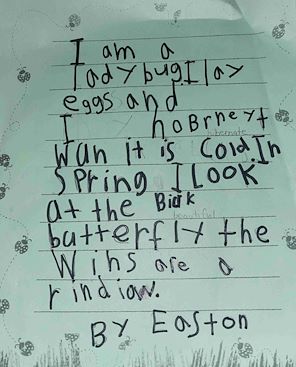 I am a
ladybug. I lay
eggs and
I hoBrnext
hibernate
Wan it is Cold In
SPring I LOOK
at the Biuk
beautiful
butterfly the
Wihs are a
rindiow.
BY Easton